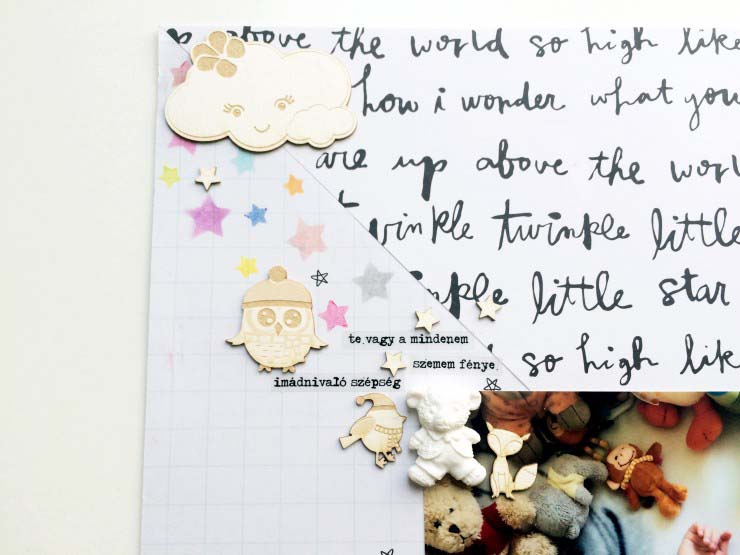 above the world so high like
how i wonder what you
are up above the worl
twinkle twinkle little
little star
so high lik
te vagy a mindenem
szemem fénye.
imádnivaló szépség